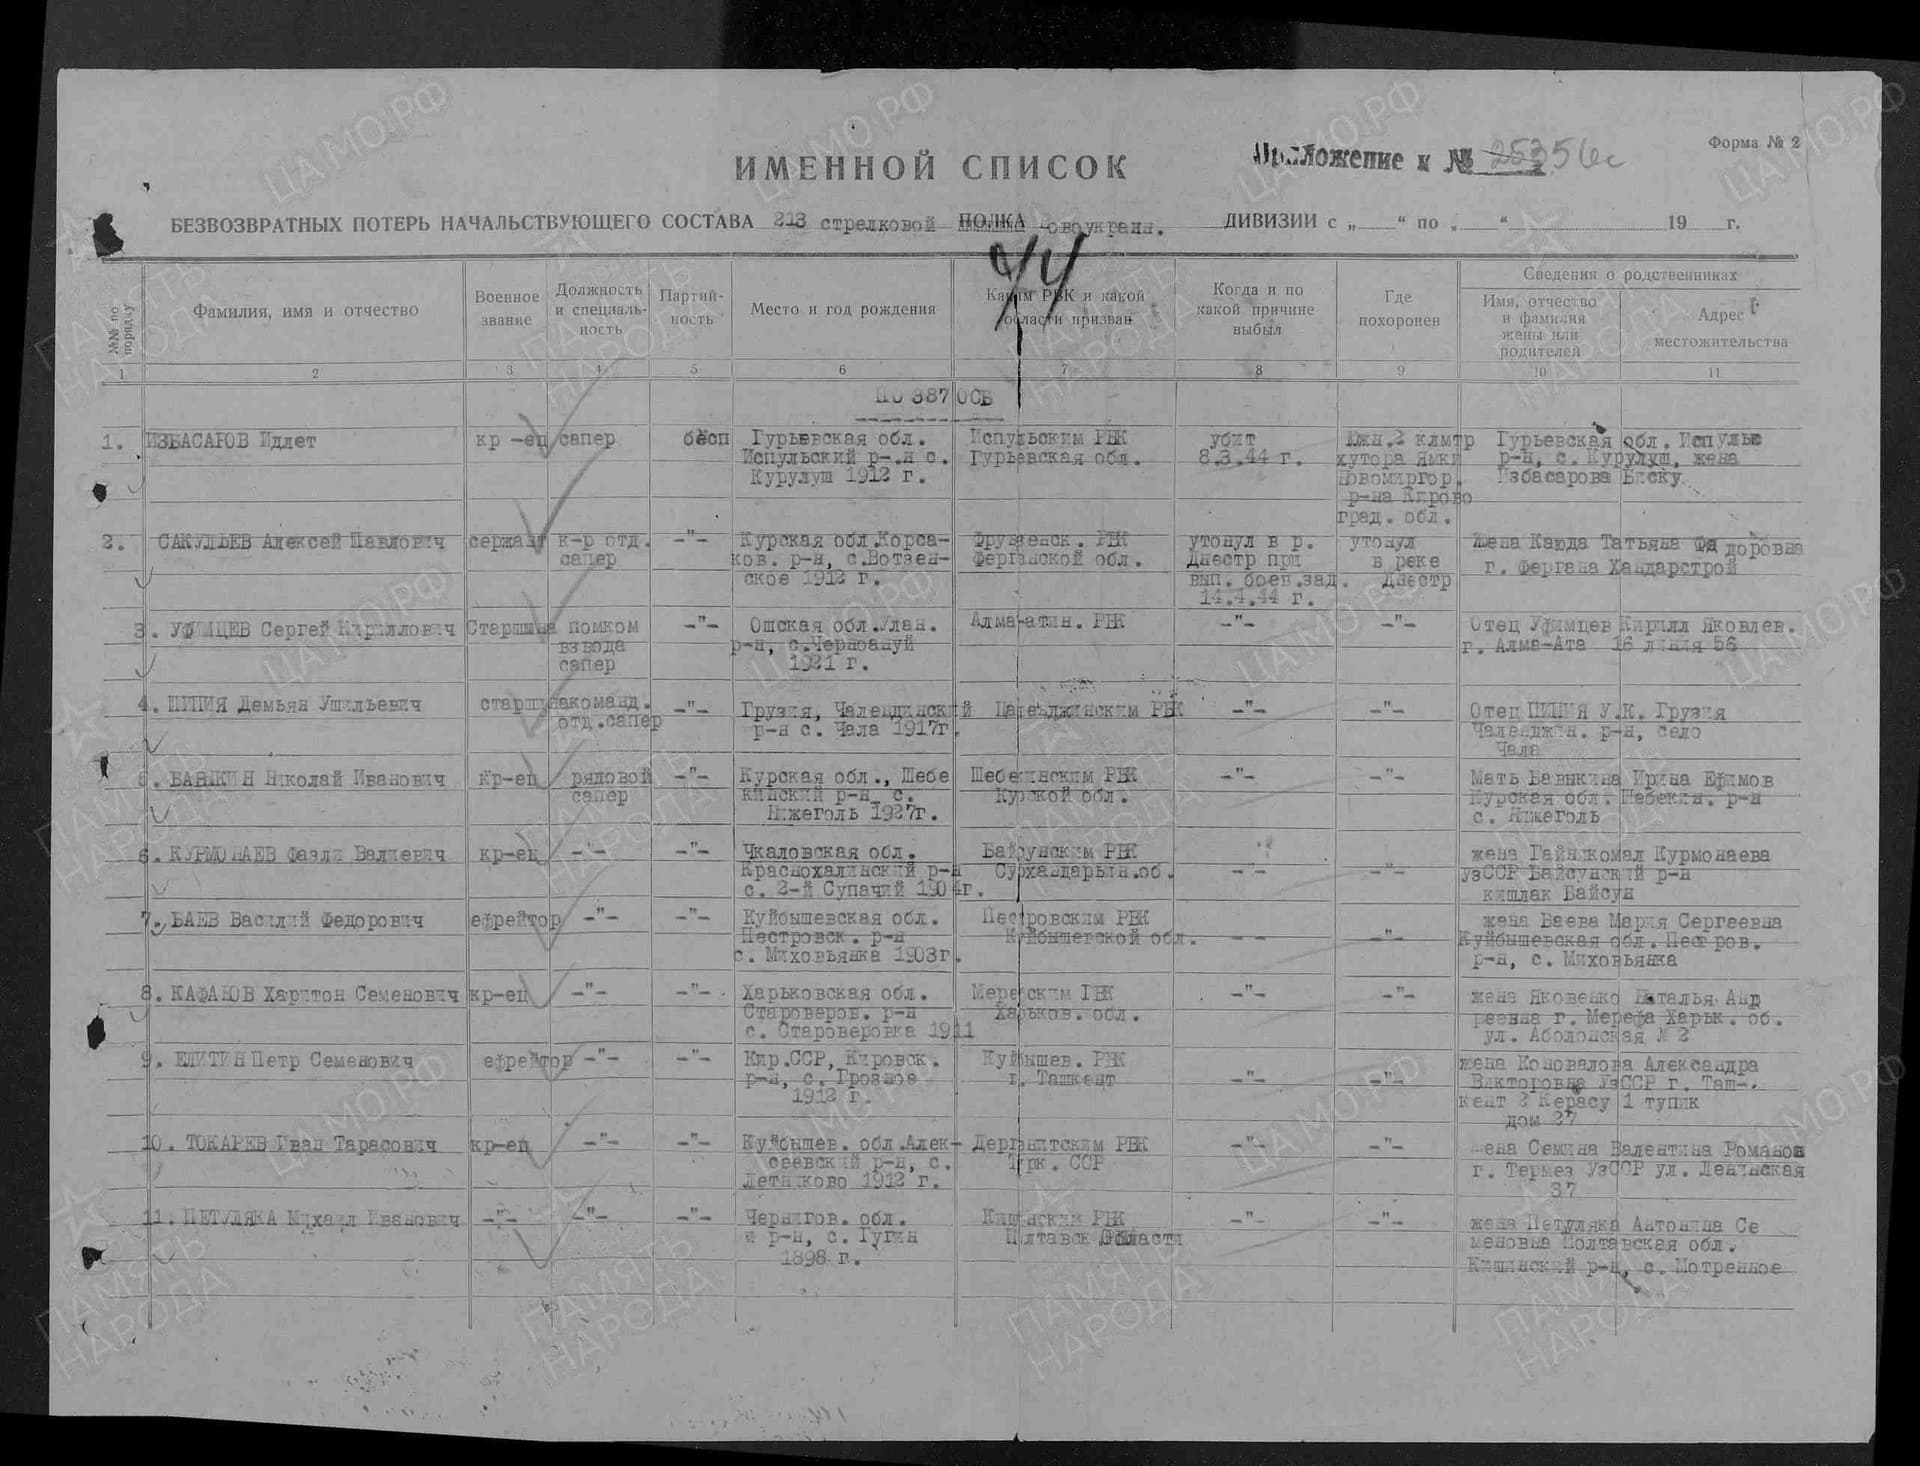 Форма № 2
Приложение к № 25356с
ИМЕННОЙ СПИСОК
БЕЗВОЗВРАТНЫХ ПОТЕРЬ НАЧАЛЬСТВУЮЩЕГО СОСТАВА 213 стрелковой ПОЛКА овоукраин. ДИВИЗИИ с „ “ по „ “ 19 г.
44
№№ по порядку
Фамилия, имя и отчество
Военное звание
Должность и специаль-ность
Партий-ность
Место и год рождения
Каким РВК и какой области призван
Когда и по какой причине выбыл
Где похоронен
Сведения о родственниках
Имя, отчество и фамилия жены или родителей
Адрес местожительства
1 2 3 4 5 6 7 8 9 10 11
ПО 387 ОСБ
1. ИЗБАСАРОВ Идлет кр-ец сапер бесп Гурьевская обл. Испульским РВК убит Южн.2 клмтр Гурьевская обл. Испульс
Испульский р-н с. Гурьевская обл. 8.3.44 г. хутора Ямки р-н, с. Курулуш, жена
Курулуш 1912 г. Новомиргор. Избасарова Биску
р-на Кирово
град. обл.
2. САКУЛЬЕВ Алексей Павлович сержант к-р отд. -"- Курская обл.Корса- Фрунзенск. РВК утонул в р. утонул Жена Каюда Татьяна Федоровна
сапер ков. р-н, с.Вотзен- Ферганской обл. Днестр при в реке г. Фергана Хандарстрой
ское 1912 г. вып. боев.зад. Днестр
14.4.44 г.
3. УФИМЦЕВ Сергей Кириллович Старшина помком -"- Ошская обл.Улан. Алма-атин. РВК -"- -"- Отец Уфимцев Кирилл Яковлев.
взвода р-н, с.Черноануй г. Алма-Ата 16 линия 56
сапер 1921 г.
4. ПИПИЯ Демьян Ушильевич старшина команд. -"- Грузия, Чалендинский РВК -"- -"- Отец ПИПИЯ У.К. Грузия
отд.сапер р-н с. Чала 1917г. Чаленджин. р-н, село
Чала
5. БАВЫКИН Николай Иванович кр-ец рядовой -"- Курская обл., Шебе Шебекинским РВК -"- -"- Мать Бавыкина Ирина Ефимов
сапер кинский р-н с. Курской обл. Курская обл. Шебекин. р-н
Нижеголь 1927г. с. Нижеголь
6. КУРМОНАЕВ Фазли Валиевич кр-ец -"- -"- Чкаловская обл. Байсунским РВК жена Гайникомал Курмонаева
Краснохалинский р-н Сурхандарьин.об. -"- -"- УзССР Байсунский р-н
с. 2-й Супачий 1904г. кишлак Байсун
7. БАЕВ Василий Федорович ефрейтор -"- -"- Куйбышевская обл. Пестровским РВК жена Баева Мария Сергеевна
Пестровск. р-н Куйбышевской обл. -"- -"- Куйбышевская обл. Пестров.
с. Миховьянка 1903г. р-н, с. Миховьянка
8. КАФАНОВ Харитон Семенович кр-ец -"- -"- Харьковская обл. Мерефским РВК -"- -"- жена Яковенко Наталья Анд
Староверов. р-н Харьков. обл. реевна г. Мерефа Харьк. об.
с. Староверовка 1911 ул. Аболонская № 2
9. ЕЛИТИН Петр Семенович ефрейтор -"- -"- Кир.ССР, Кировск. Куйбышев. РВК жена Коновалова Александра
р-н, с. Грозное г. Ташкент -"- -"- Викторовна УзССР г. Таш-
1912 г. кент 2 Керасу 1 тупик
дом 27
10. ТОКАРЕВ Иван Тарасович кр-ец -"- -"- Куйбышев. обл.Алек- РВК -"- -"- жена Семина Валентина Романов
сеевский р-н, с. Турк. ССР г. Термез УзССР ул. Ленинская
Летниково 1912 г. 37
11. ПЕТУЛЯКА Михаил Иванович -"- -"- -"- Чернигов. обл. Кишинским РВК -"- -"- жена Петуляка Антонина Се
р-н, с. Гугин Полтавск области меновна Полтавская обл.
1898 г. Кишинский р-н, с. Мотренное